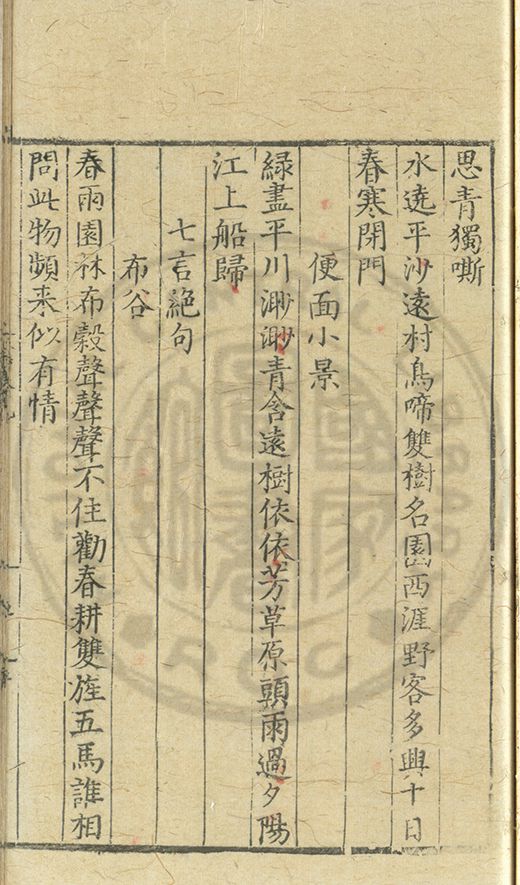 思青獨嘶
水遶平沙遠村鳥啼雙樹名園西涯野客多興十日
春寒閉門
便面小景
緑盡平川渺渺青含遠樹依依芳草原頭雨過夕陽
江上船歸
七言絶句
布谷
春雨園林布穀聲聲聲不住勸春耕雙旌五馬誰相
問此物頻来似有情